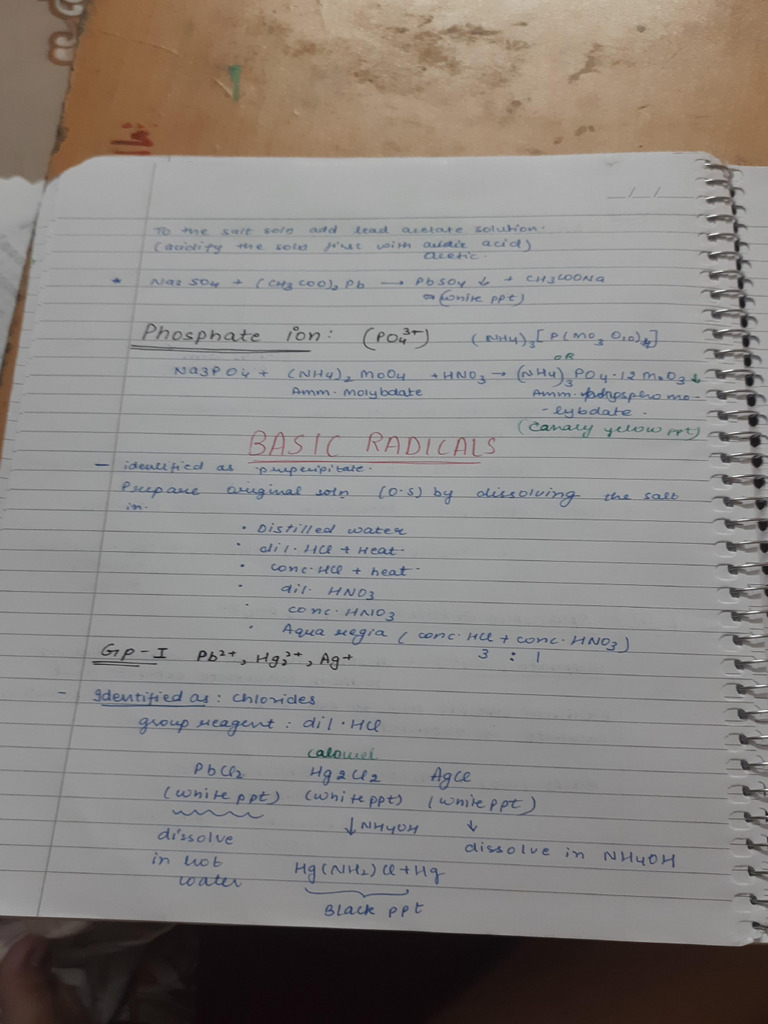 __/__/__
To the salt soln add lead acetate solution.
(acidify the soln first with acid)
acetic.
* Na2SO4 + (CH3COO)2Pb → PbSO4 ↓ + CH3COONa
(white ppt)
Phosphate ion: (PO4 3+) (NH4)3[P(Mo3O10)4]
OR
Na3PO4 + (NH4)2MoO4 + HNO3 → (NH4)3PO4·12MoO3↓
Amm. molybdate Amm. phosphomo-
-lybdate.
(canary yellow ppt)
BASIC RADICALS
- identified as
Prepare original soln (O.S) by dissolving the salt
in.
• Distilled water
• dil. HCl + Heat.
• conc. HCl + heat.
• dil. HNO3
• conc. HNO3
• Aqua regia (conc. HCl + conc. HNO3)
3 : 1
Gp-I Pb2+, Hg2 2+, Ag+
- Identified as: chlorides
group reagent: dil. HCl
calomel
PbCl2 Hg2Cl2 AgCl
(white ppt) (white ppt) (white ppt)
↓NH4OH ↓
dissolve dissolve in NH4OH
in hot Hg(NH2)Cl + Hg
water
Black ppt